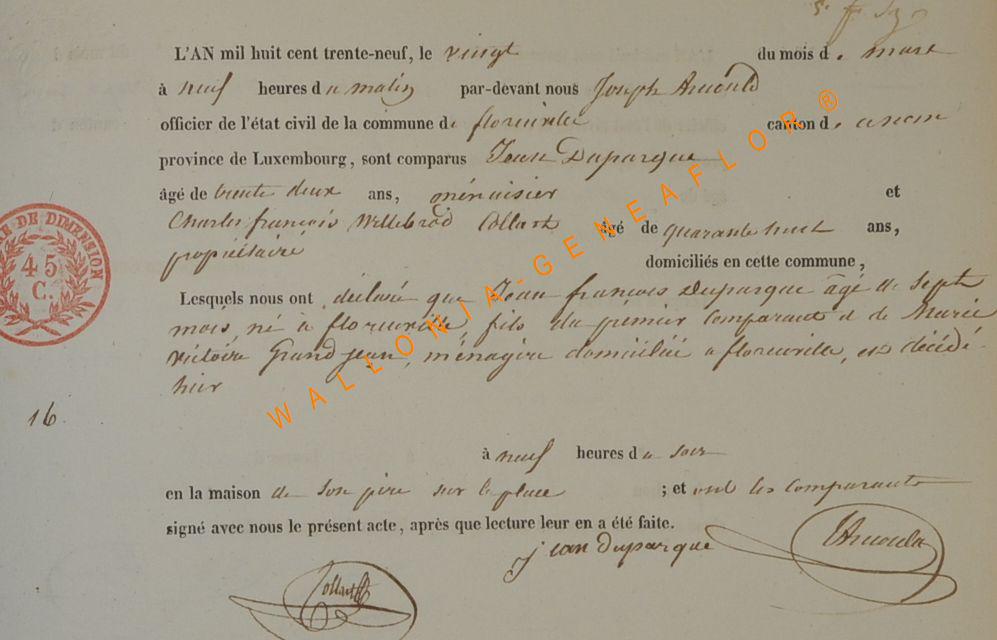 L'AN mil huit cent trente-neuf, le vingt du mois de mars
à neuf heures du matin par-devant nous Joseph Arnould
officier de l'état civil de la commune de florenville canton d
province de Luxembourg, sont comparus Jean Duparque
âgé de trente deux ans, ménuisier et
Charles françois Willebrod Collart âgé de quarante huit ans,
propriétaire
domiciliés en cette commune,
Lesquels nous ont déclaré que Jean françois Duparque âgé de sept
mois, né à florenville, fils du premier comparant et de Marie
victoire Grandjean, ménagère domiciliée a florenville, est décédé
hier
16
à neuf heures du soir
en la maison de son père sur la place ; et ont les comparants
signé avec nous le présent acte, après que lecture leur en a été faite.
jean duparque
JArnould
Collart
DE DIMENSION
45
C.
WALLONIA-GENEAFLOR®